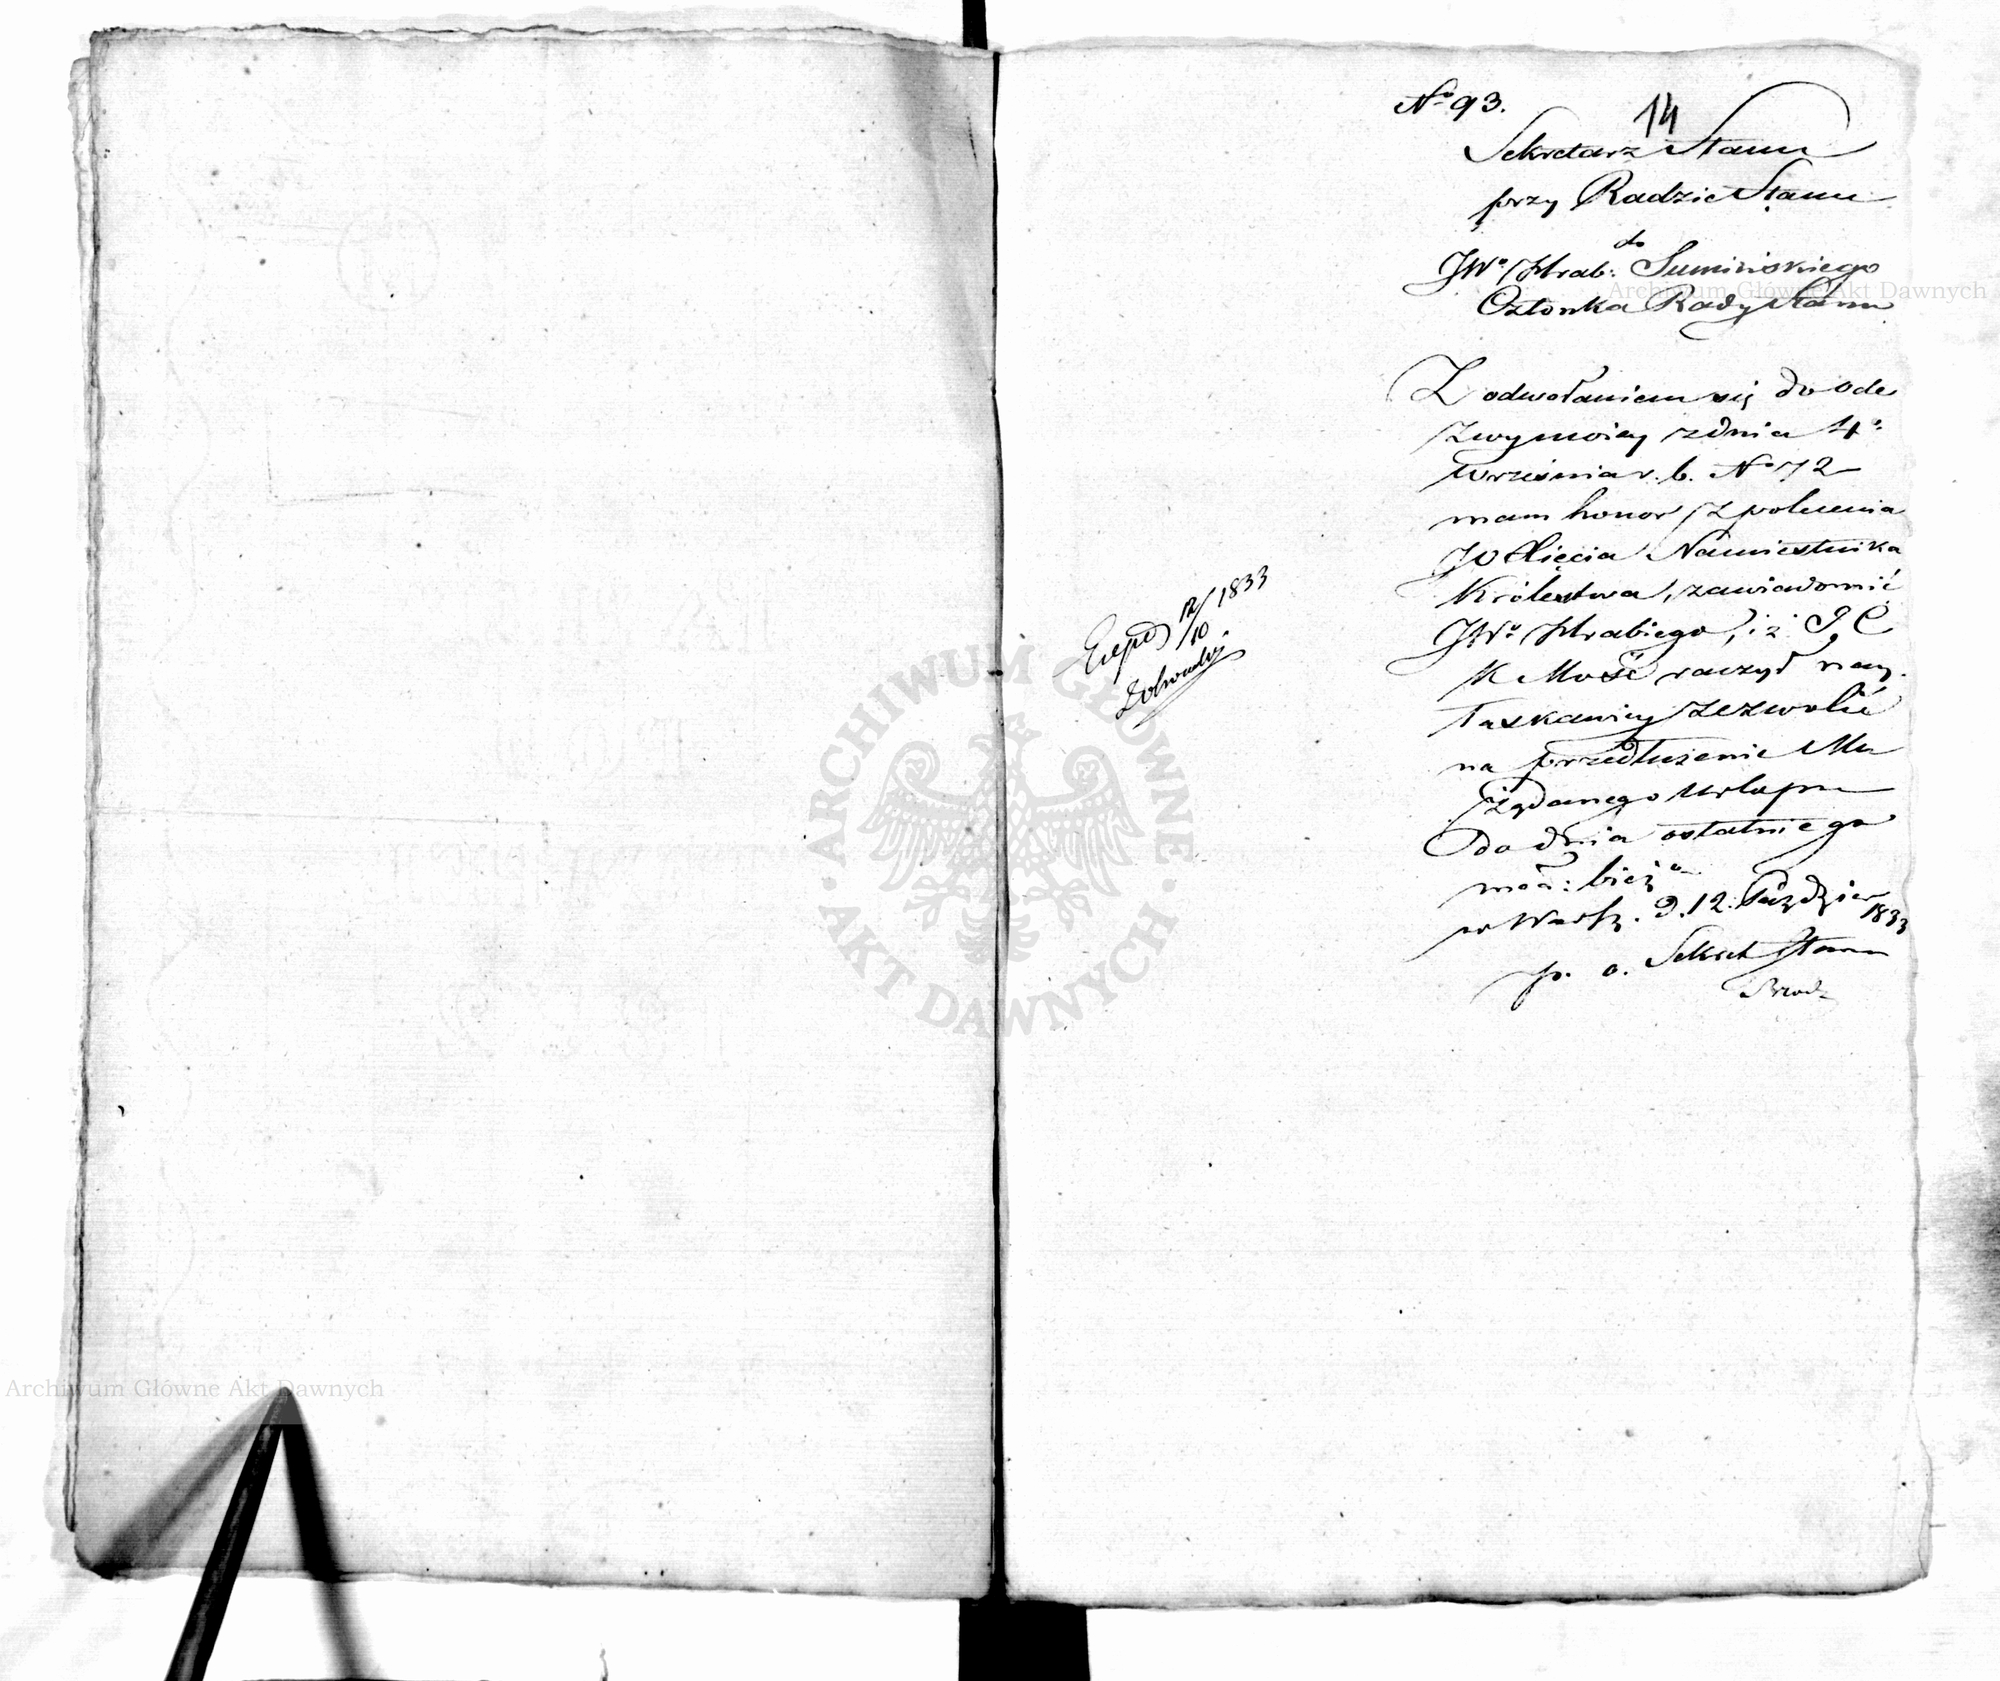 No 93.
14
Sekretarz Stanu
przy Radzie Stanu
do
JWo Hrab: Sumińskiego
Członka Rady Stanu
Z odwołaniem się do ode
zwy moiey z dnia 4o
Września r. b. No 72
mam honor z polecenia
JO Xięcia Namiestnika
Królestwa, zawiadomić
JWo Hrabiego, iż J. C
K Mość raczył nay
łaskawiey zezwolić
na przedłużenie Mu
żądanego Urlopu
do dnia ostatniego
m-ca: bież-o
w Warsz. d. 12. Paździer 1833
p. o. Sekret Stanu
Exped 12/10 1833
ARCHIWUM GŁÓWNE AKT DAWNYCH
Archiwum Główne Akt Dawnych
Archiwum Główne Akt Dawnych